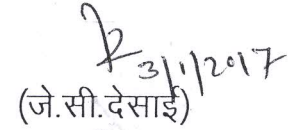 3/1/2017
(जे.सी.देसाई)